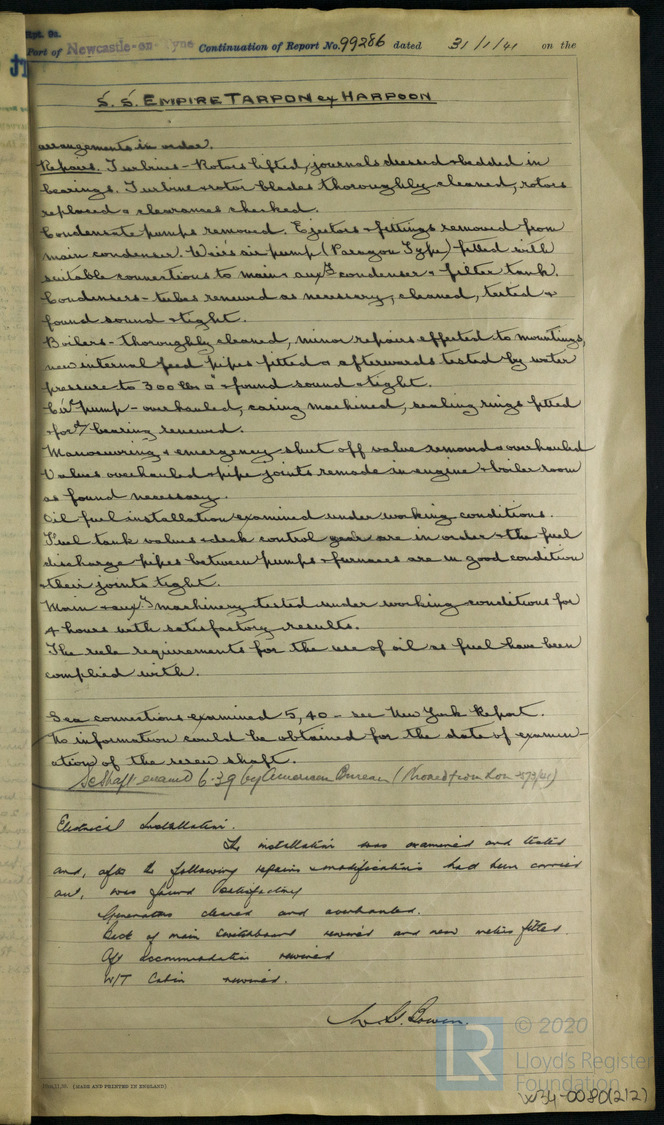 Rpt. 9a.
Port of Newcastle-on-Tyne Continuation of Report No. 99286 dated 31/1/41 on the
S.S. EMPIRE TARPON ex HARPOON
arrangements in order.
Repairs. Turbines - Rotors lifted, journals dressed & bedded in
bearings. Turbine & rotor blades thoroughly cleaned, rotors
replaced & clearances checked.
Condensate pumps removed. Ejectors & fittings removed from
main condenser. Weir's air pump (Paragon Type) fitted with
suitable connections to main & auxy condenser & filter tank.
Condensers - tubes renewed as necessary, cleaned, tested &
found sound & tight.
Boilers - thoroughly cleaned, minor repairs effected to mountings,
new internal feed pipes fitted & afterwards tested by water
pressure to 300 lbs □" & found sound & tight.
Cirg pump - overhauled, casing machined, sealing rings fitted
& ford bearing renewed.
Manoeuvring & emergency shut off valve removed & overhauled
Valves overhauled & pipe joints remade in engine & boiler room
as found necessary.
Oil fuel installation examined under working conditions.
Fuel tank valves & deck control gear are in order & the fuel
discharge pipes between pumps & furnaces are in good condition
& their joints tight.
Main & auxy machinery tested under working conditions for
4 hours with satisfactory results.
The rule requirements for the use of oil as fuel have been
complied with.
Sea connections examined 5,40 - see New York Report.
No information could be obtained for the date of examin-
ation of the screw shaft.
Sc Shaft examd 6.39 by American Bureau (Phoned from Lon
Electrical Installation.
The installation was examined and tested
and, after the following repairs & modifications had been carried
out, was found satisfactory
Generators cleaned and overhauled.
Back of main switchboard rewired and new meters fitted.
Aft accommodation rewired
W/T Cabin rewired.
Bowen.
© 2020
LR
Lloyd's Register
Foundation
(MADE AND PRINTED IN ENGLAND)
W34-0080(2/2)